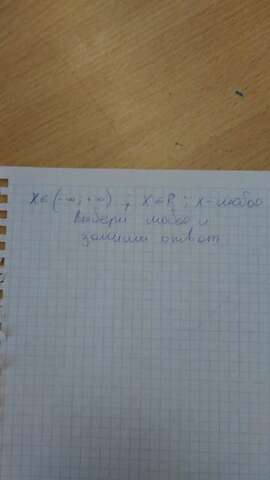 x ∈ (-∞; +∞), x ∈ R; x - любое
Выбери любое и
запиши ответ